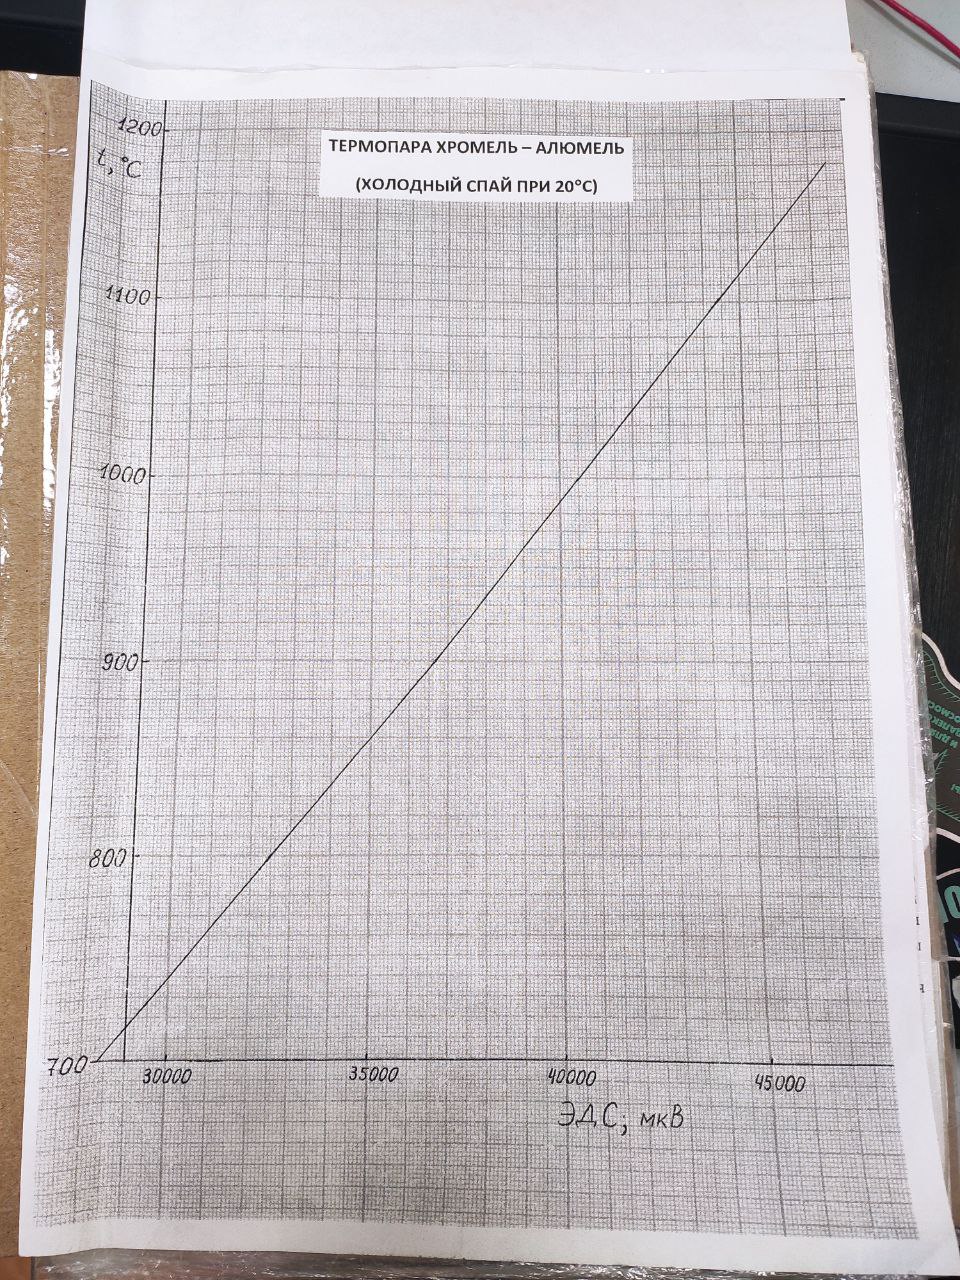 ТЕРМОПАРА ХРОМЕЛЬ – АЛЮМЕЛЬ
(ХОЛОДНЫЙ СПАЙ ПРИ 20°С)
1200
t,°C
1100
1000
900
800
700
30000 35000 40000 45000
ЭДС; мкВ